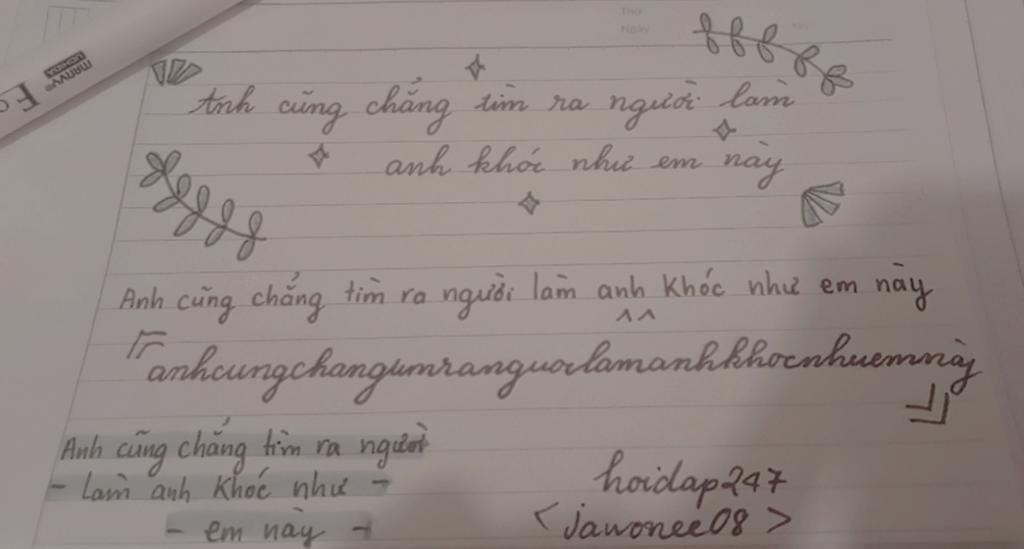 Thứ
Ngày
Anh cũng chẳng tìm ra người làm
anh khóc như em này
Anh cũng chẳng tìm ra người làm anh khóc như em này
^^
anhcungchangtimranguoilamanhkhocnhuemnày
Anh cũng chẳng tìm ra người
- làm anh khóc như -
- em này -
hoidap247
<jawonee08>